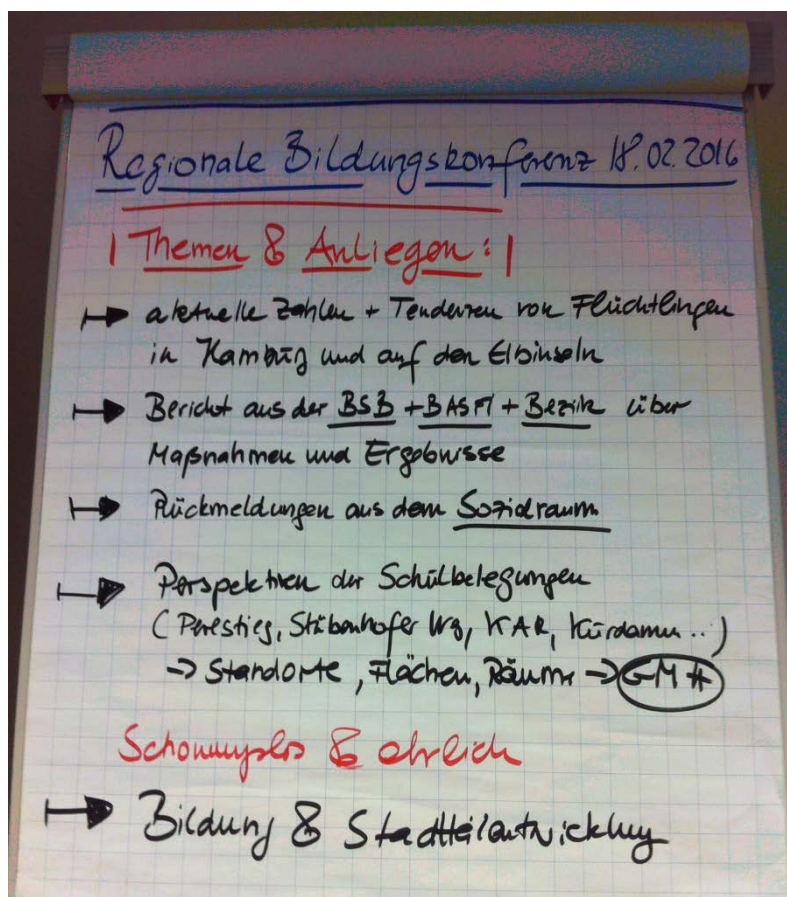 Regionale Bildungskonferenz 18.02.2016
Themen & Anliegen:
aktuelle Zahlen + Tendenzen von Flüchtlingen
in Hamburg und auf den Elbinseln
Bericht aus der BSB + BASFI + Bezirk über
Maßnahmen und Ergebnisse
Rückmeldungen aus dem Sozialraum
Perspektiven der Schulbelegungen
(Perestieg, Stübenhofer Weg, KAR, Kurdamm..)
-> Standorte, Flächen, Räume ->
Schonungslos & ehrlich
Bildung & Stadtteilentwicklung